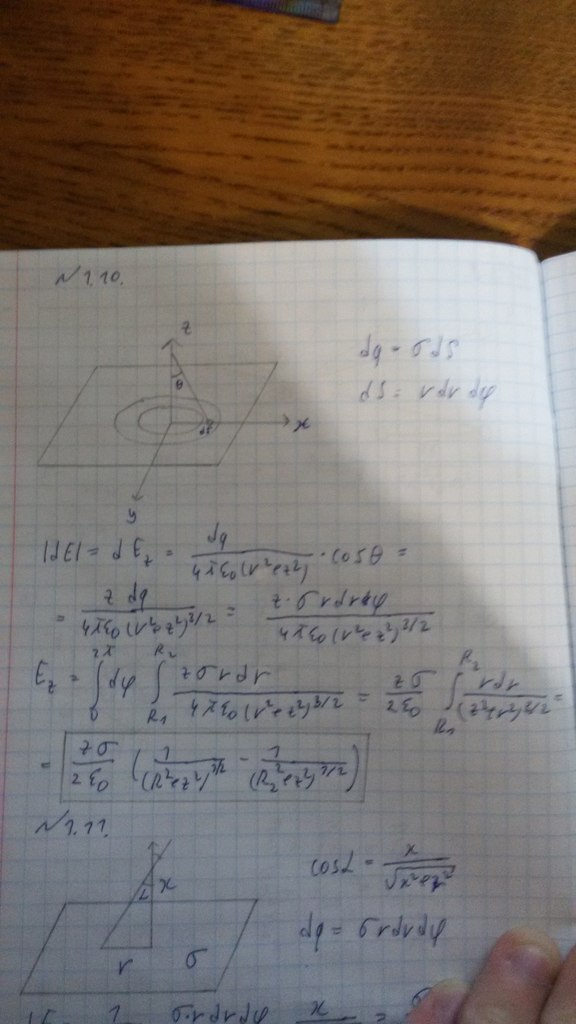 N 1.10.
z
dq = σ dS
θ
dS = r dr dφ
dS
x
y
|dE| = dE_z = dq / (4πε₀(r²+z²)) · cos θ =
= z dq / (4πε₀(r²+z²)^3/2) = z · σ r dr dφ / (4πε₀(r²+z²)^3/2)
E_z = ∫₀^2π dφ ∫_R₁^R₂ z σ r dr / (4πε₀(r²+z²)^3/2) = zσ / 2ε₀ ∫_R₁^R₂ r dr / (z²+r²)^3/2 =
= zσ / 2ε₀ (1 / (R²+z²)^3/2 − 1 / (R₂²+z²)^3/2)
N 1.11.
cos α = x / √(x²+r²)
α x
dq = σ r dr dφ
r σ
σ · r dr dφ x =